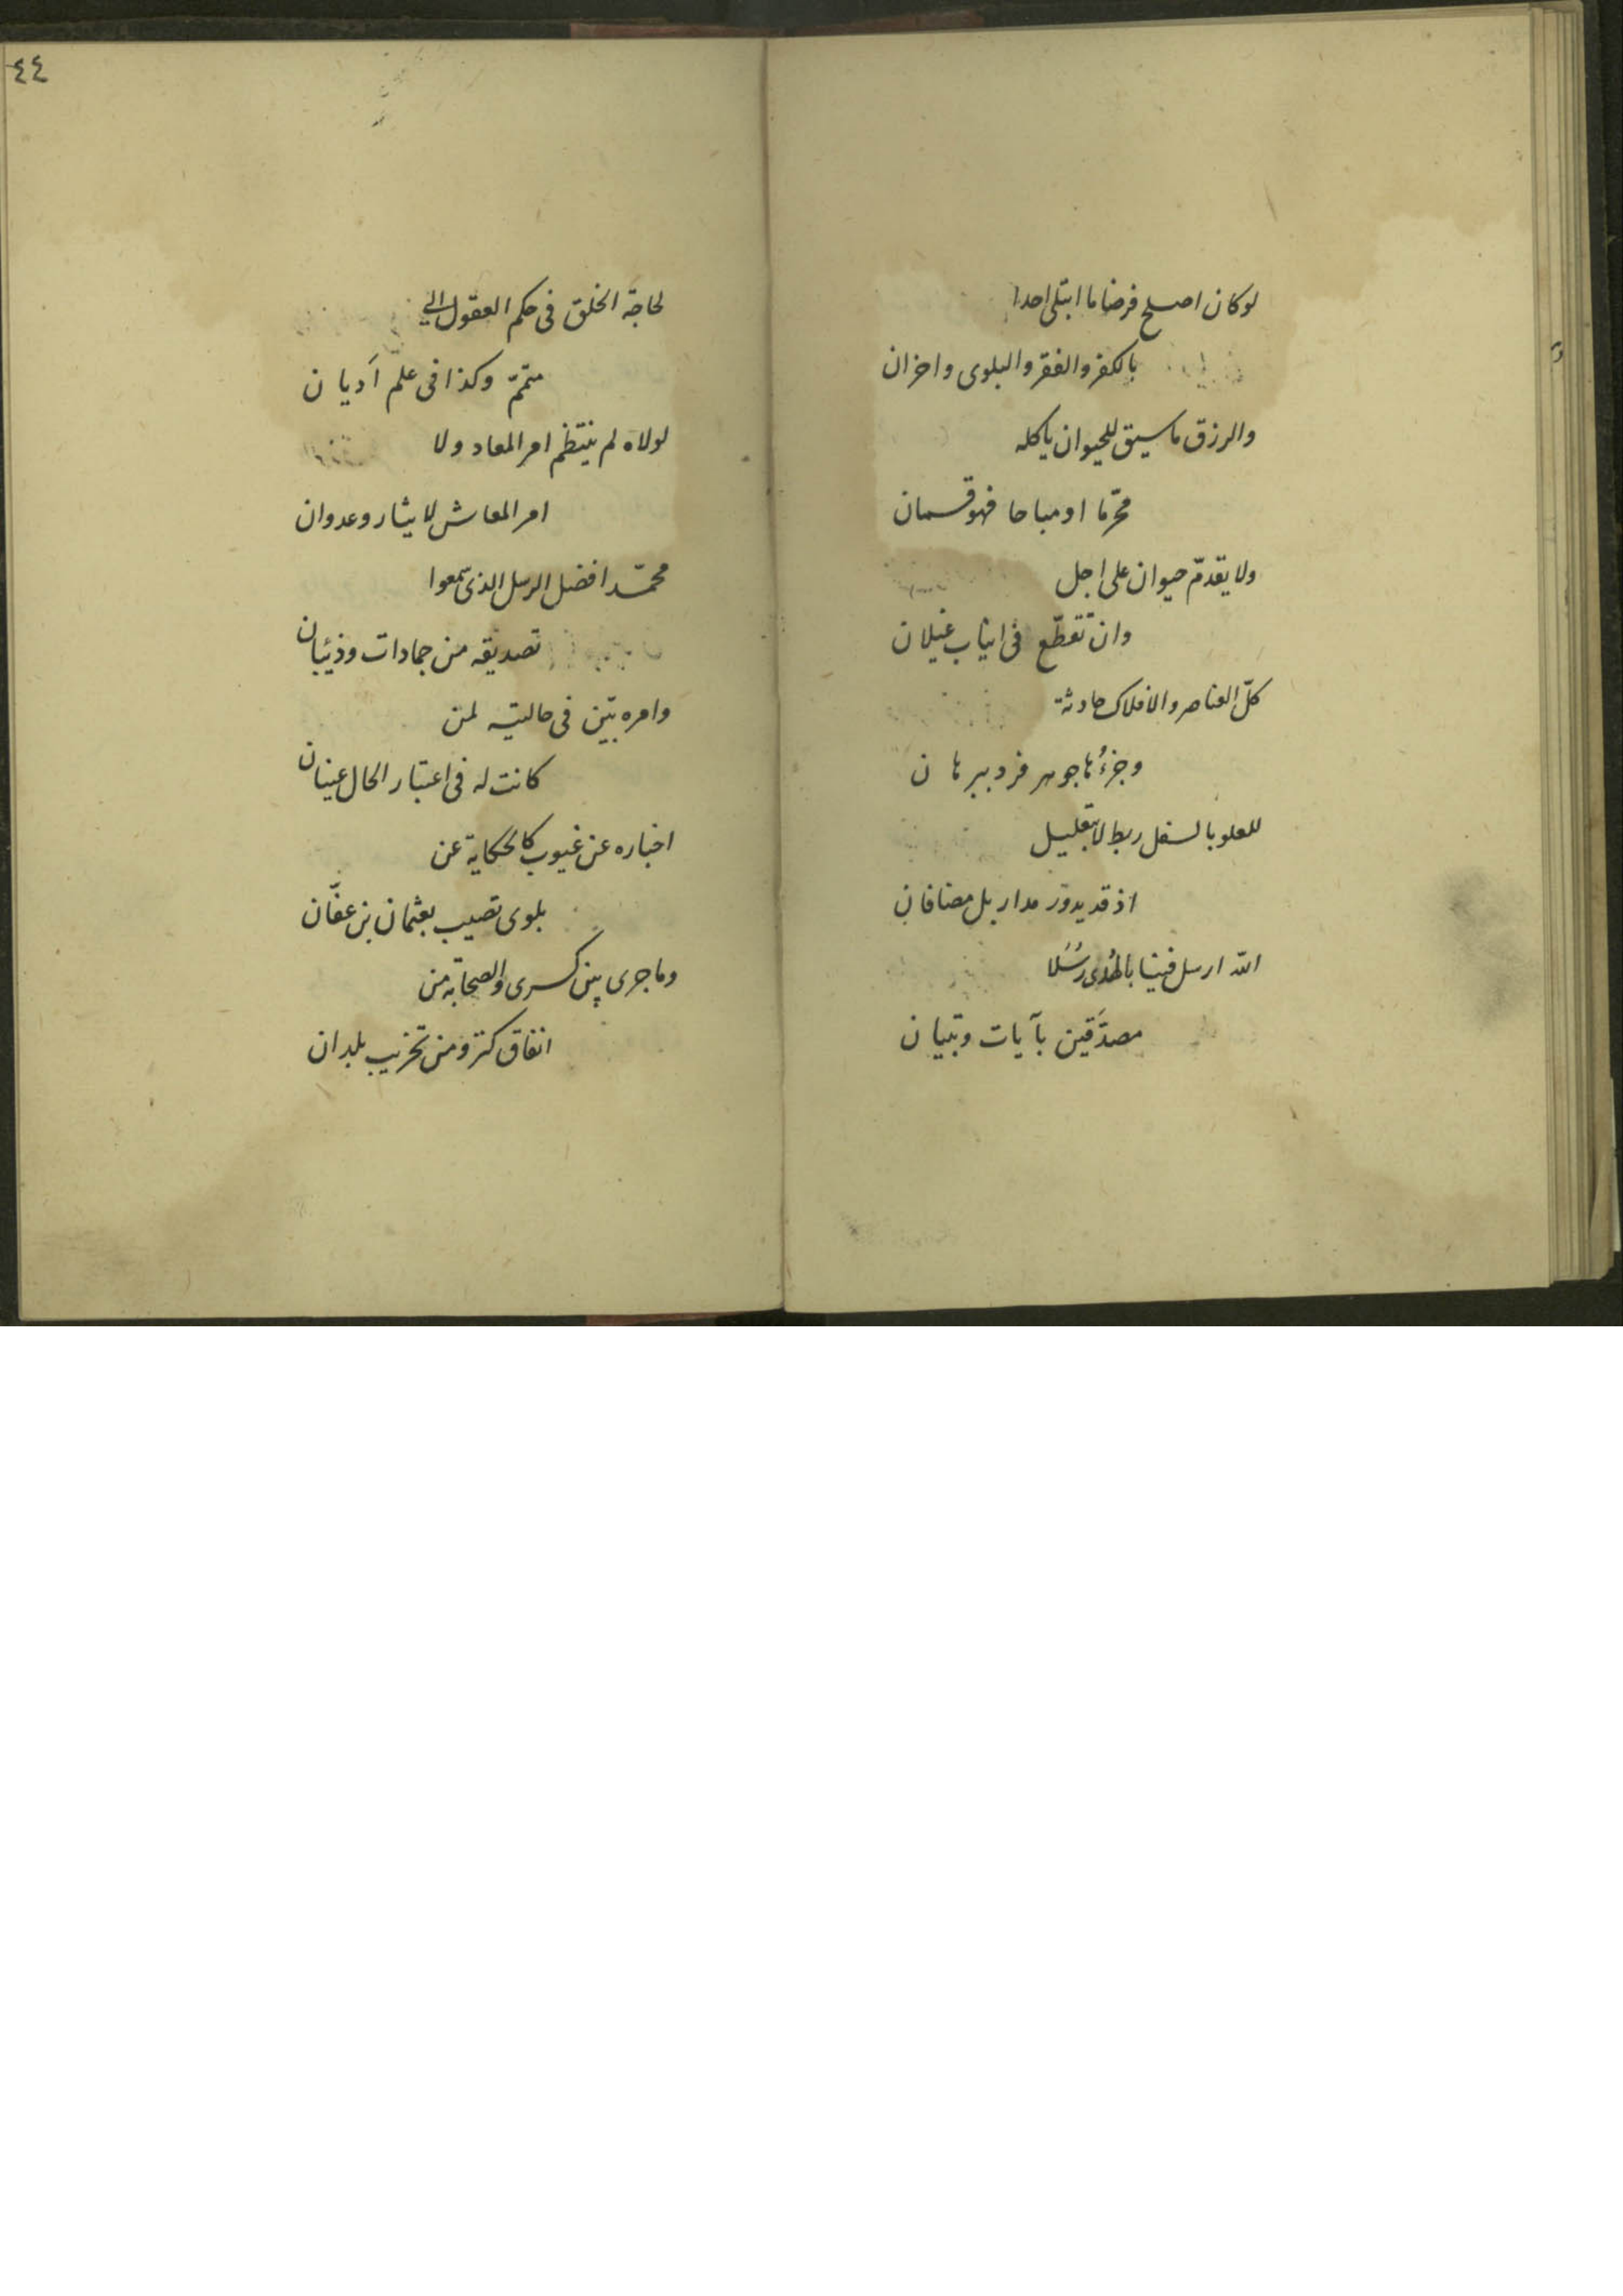 لو كان اصلح فرضا ما ابتلى احدا
بالكفر والفقر والبلوى واحزان
والرزق ما سيق للحيوان ياكله
محرّما او مباحا فهو قسمان
ولا يقدّم حيوان على اجل
وان تقطّع فى انياب غيلان
كلّ العناصر والافلاك حادثة
وجزءُها جوهر فرد ببرهان
للعلو بالسفل ربط لا بتعليل
اذ قد يدوّر مدار بل مضافان
الله ارسل فينا بالهُدى رُسُلا
مصدَّقين بآيات وتبيان
٤٤
لحاجة الخلق فى حكم العقول الى
متمّم وكذا فى علم اَديان
لولاه لم ينتظم امر المعاد ولا
امر المعاش لايثار وعدوان
محمّد افضل الرسل الذى سمعوا
تصديقه من جمادات وذئبان
وامره بيّن فى حاليه لمن
كانت له فى اعتبار الحال عينان
اخباره عن غيوب كالحكاية عن
بلوى تصيب بعثمان بن عفّان
وما جرى بين كسرى والصحابة من
انفاق كنز ومن تخريب بلدان